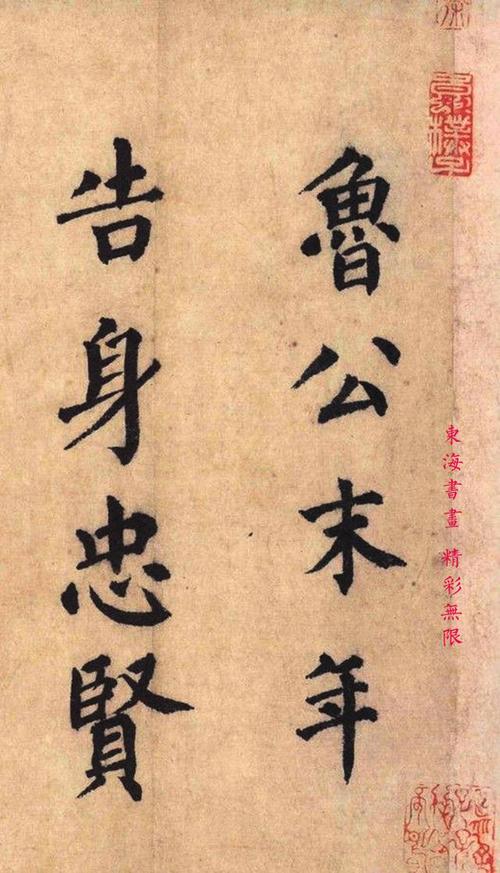 魯公末年
告身忠賢
東海書畫 精彩無限